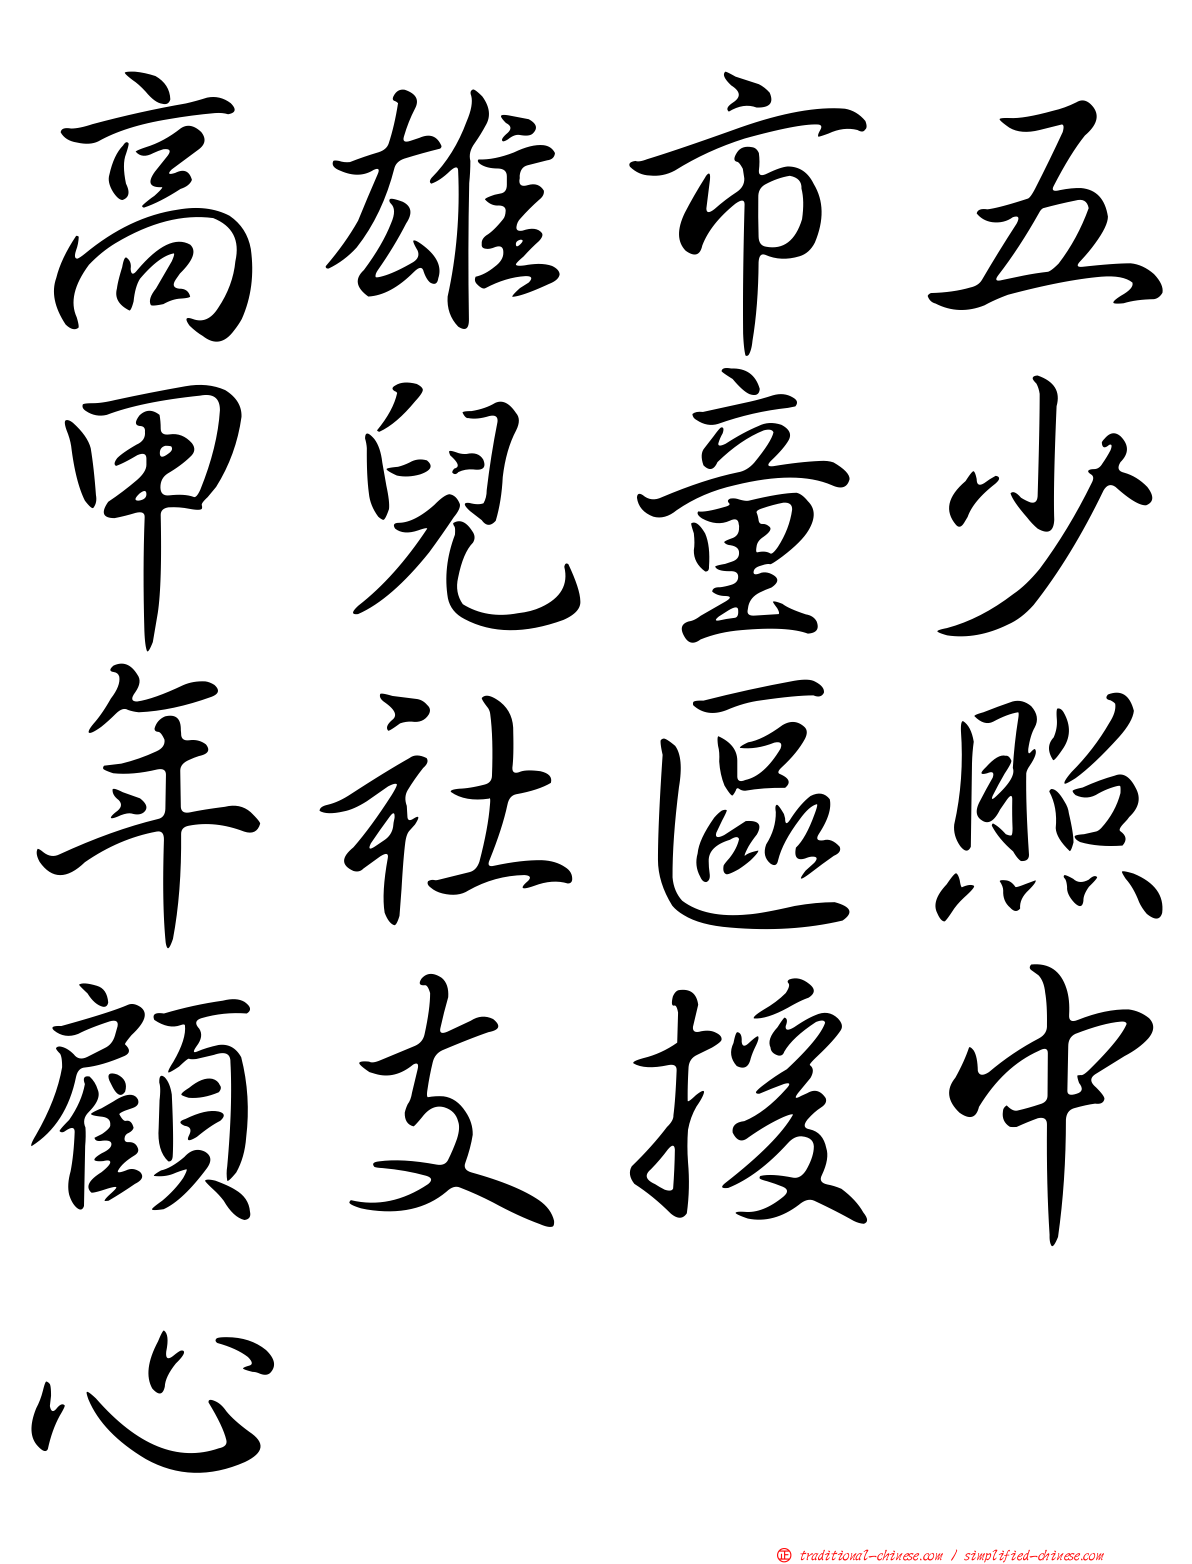 高雄市五
甲兒童少
年社區照
顧支援中
心
㊣ traditional-chinese.com / simplified-chinese.com